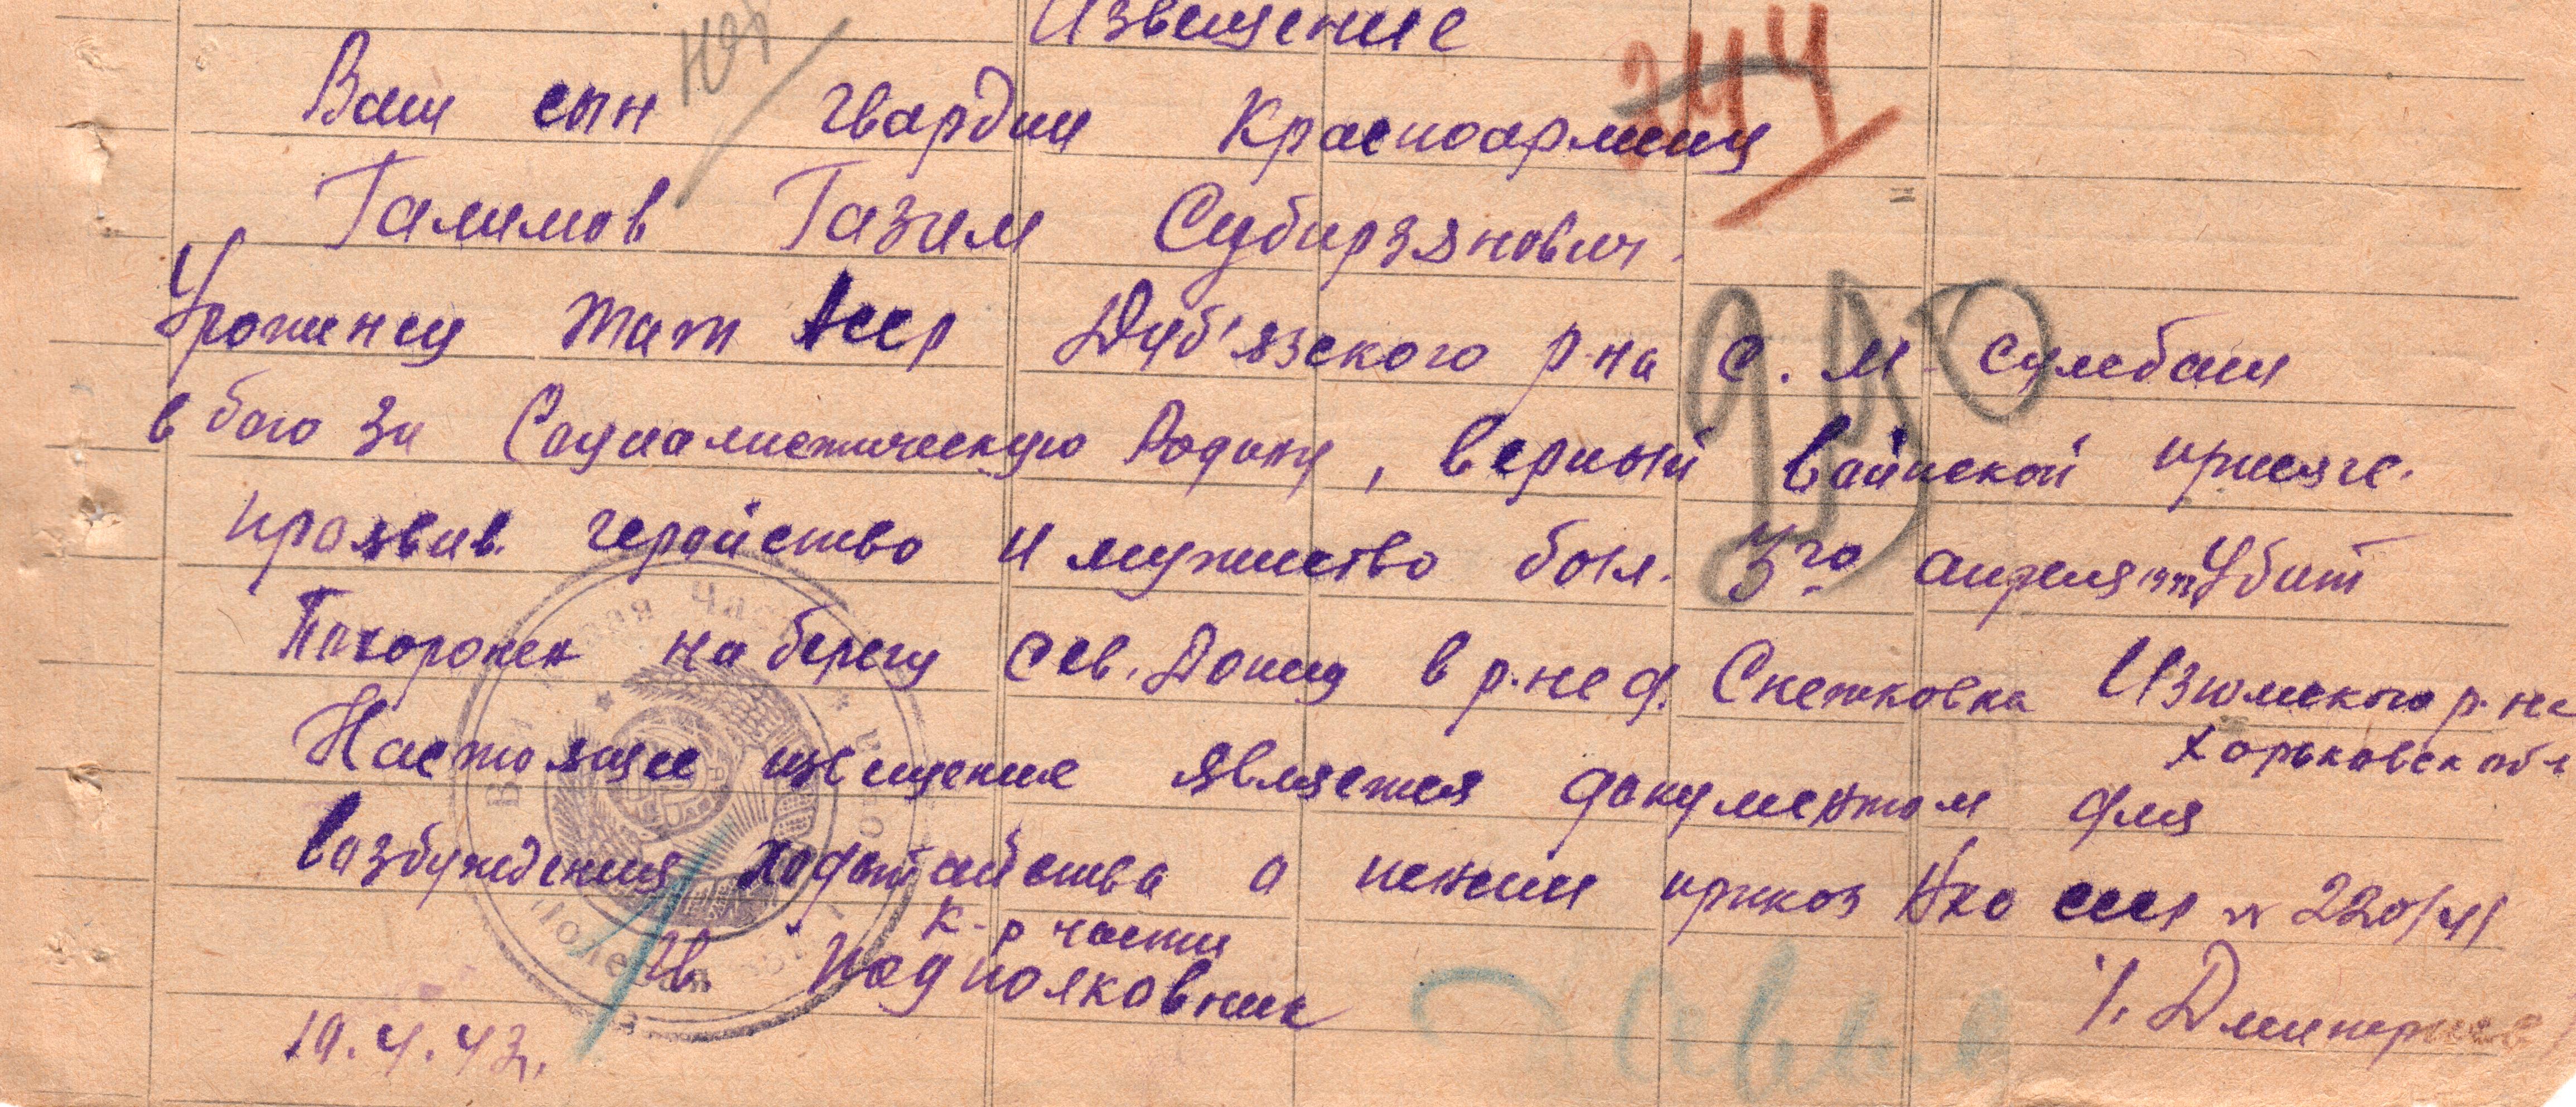 Извещение
244
Ваш сын гвардии Красноармеец
Галимов Газим Субирзянович.
Уроженец тат Асср Дуб'язского р-на с. М-Сулебаш
250
в бою за Социалистическую Родину, верный вайнской присяге.
проявив. геройство и мужество был. 3го апреля Убит
Похоронен на берегу Сев. Донец в р-не д. Снежковка Изюмского р-на
Харьковск обл
Настоящее извещение является документом для
возбуждения ходатайства о пенсии приказ Нко ссср № 220/41
к-р части
Гв. подполковник /. Дмитриев/
19.4.43.